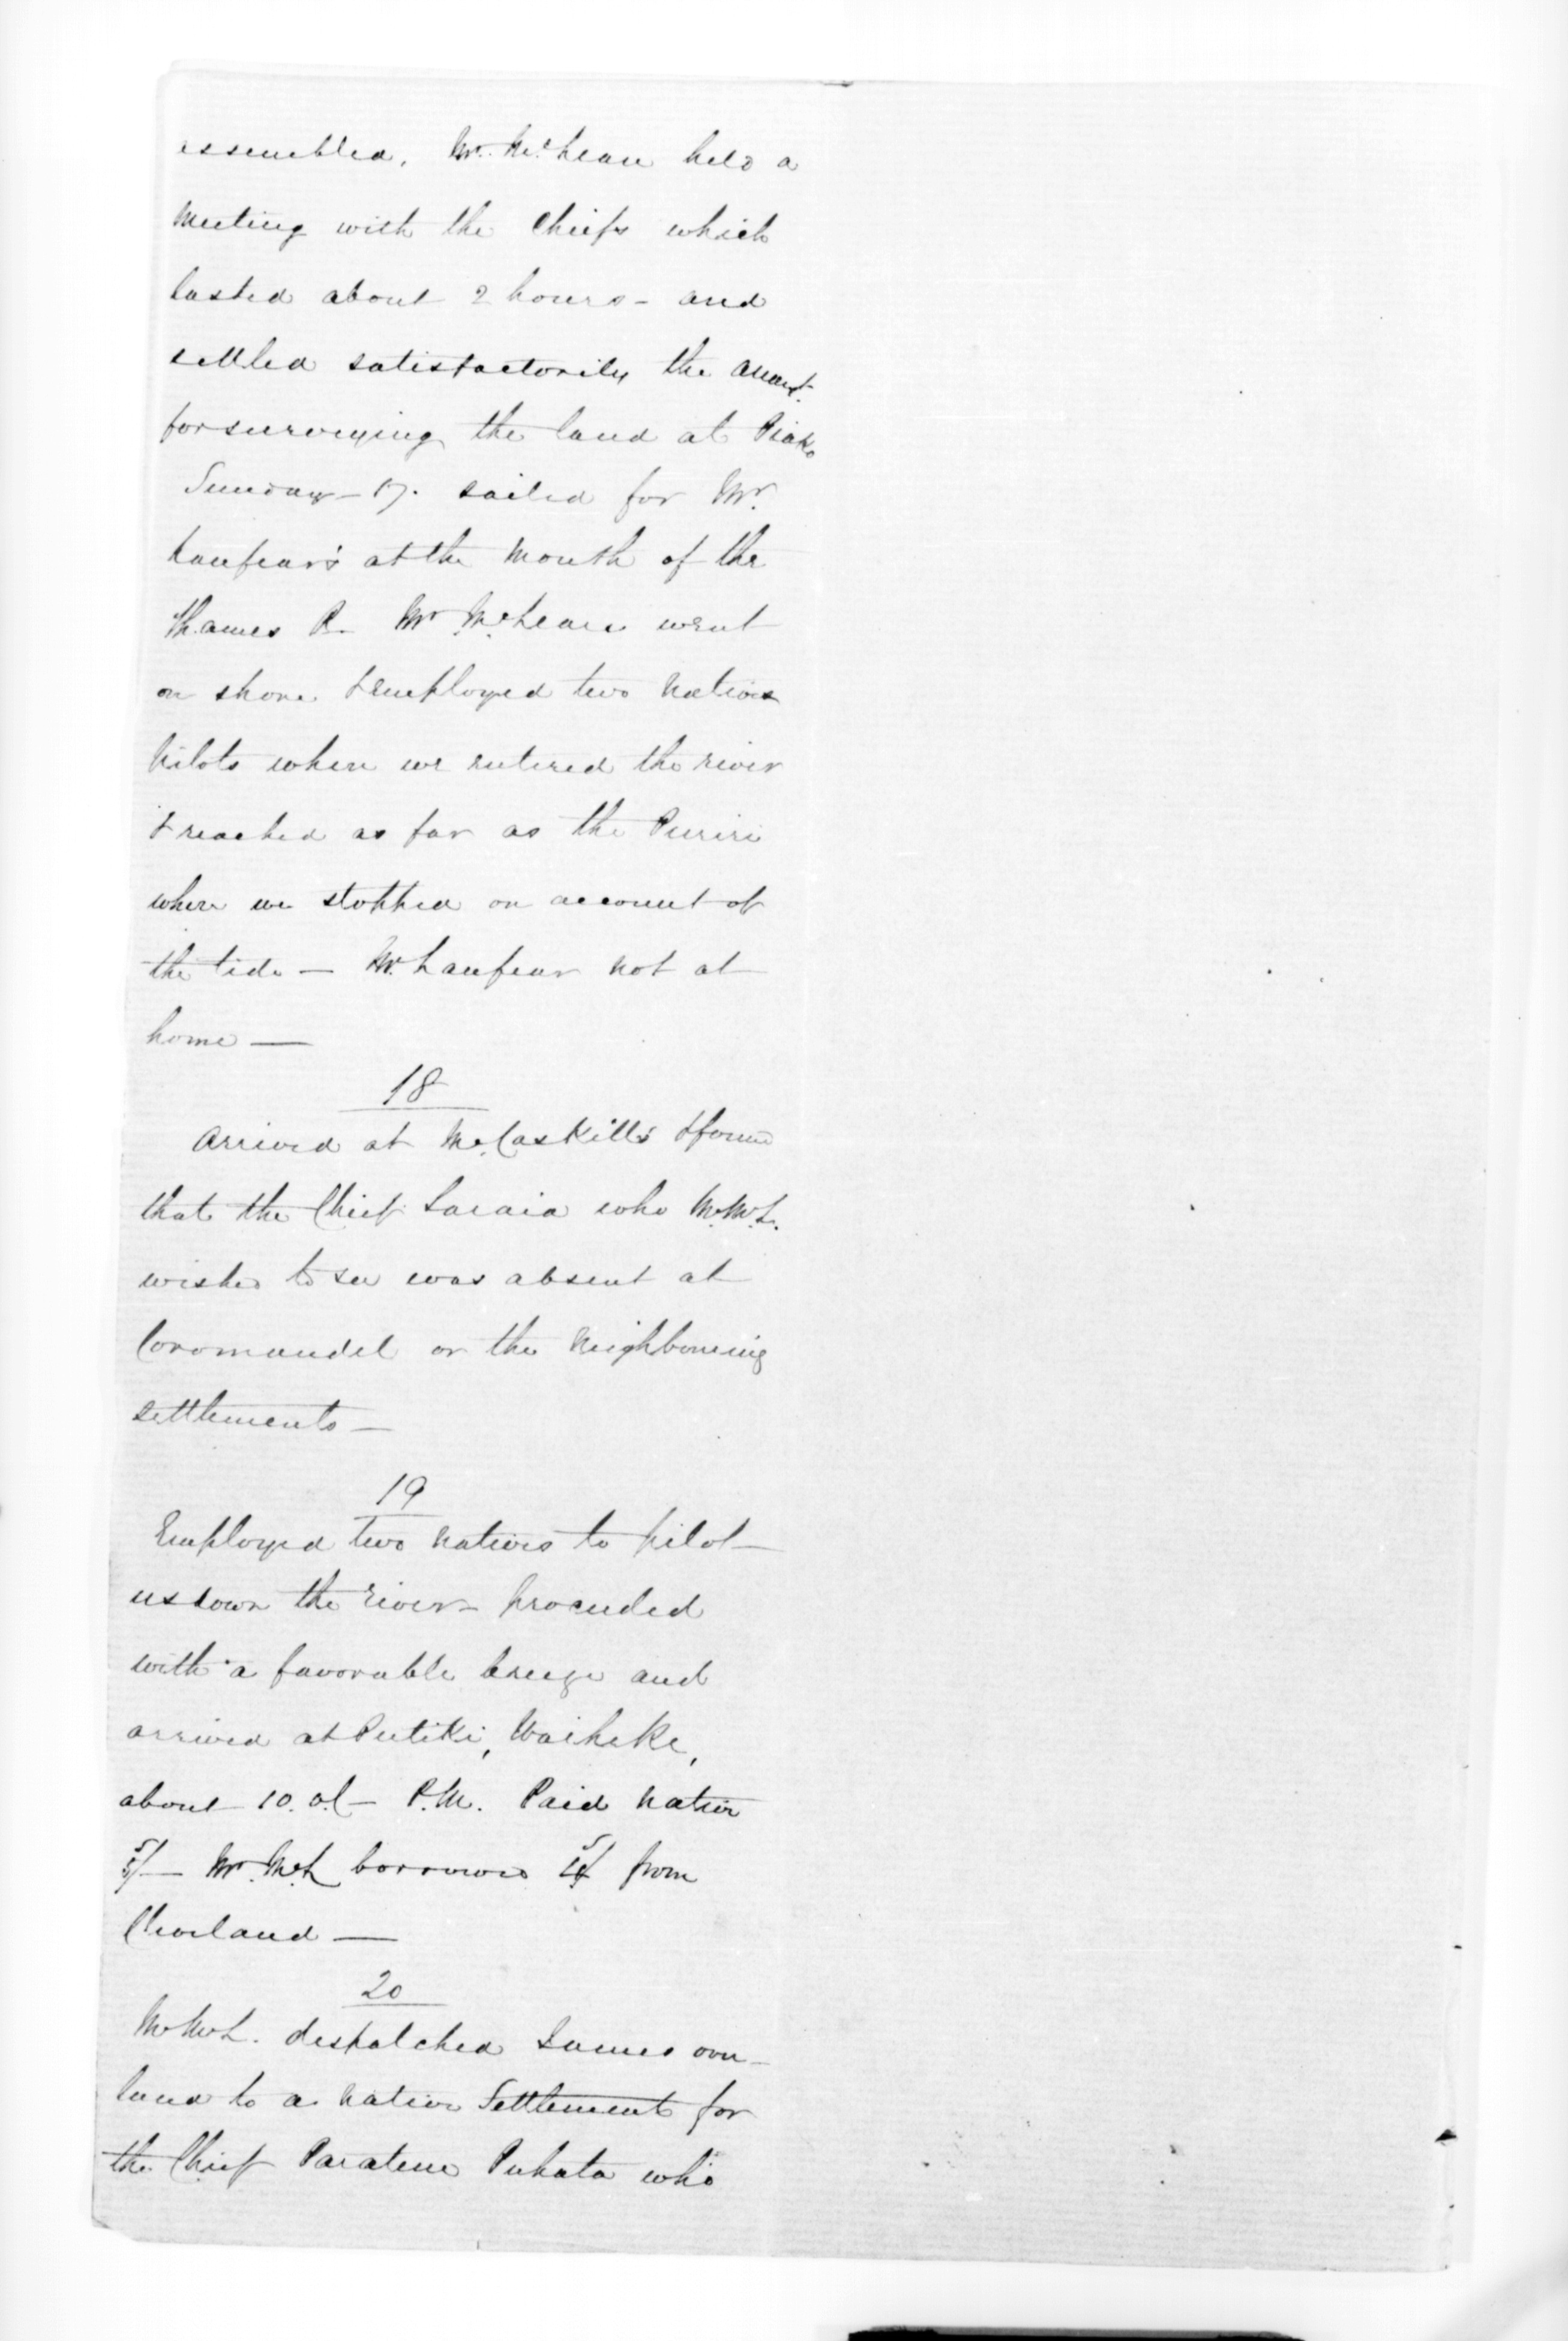 assembled. Mr. McLean held a
meeting with the Chiefs which
lasted about 2 hours - and
settled satisfactorily the amount
for surveying the land at Piako
Sunday - 17. sailed for Mr.
Lanfear's at the mouth of the
Thames R. Mr McLean went
on shore & employed two native
pilots when we entered the river
& reached as far as the Puriri
where we stopped on account of
the tide — Mr. Lanfear not at
home —
18
Arrived at McCaskill's & found
that the Chief Taraia who Mr McL.
wished to see was absent at
Coromandel or the neighbouring
settlements —
19
Employed two natives to pilot
us down the river - proceeded
with a favorable breeze and
arrived at Putiki, Waiheke,
about 10. o.C - P.M. Paid native
5/- Mr. McL borrowed from
Cleveland —
20
Mr McL. despatched James over-
land to a native Settlement for
the Chief Paratene Puhata who